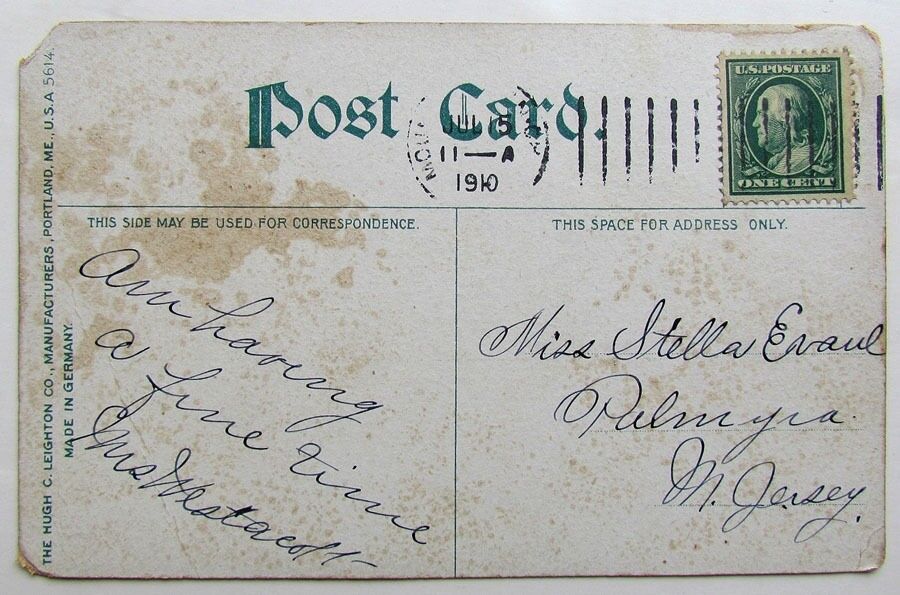 THE HUGH C. LEIGHTON CO., MANUFACTURERS, PORTLAND, ME., U.S.A 5614.
MADE IN GERMANY.
Post Card.
JUL 15
11—A
1910
U.S. POSTAGE
ONE CENT
THIS SIDE MAY BE USED FOR CORRESPONDENCE.
THIS SPACE FOR ADDRESS ONLY.
Am having
a fine time
Mrs Westacott
Miss Stella Evaul
Palmyra.
N. Jersey.